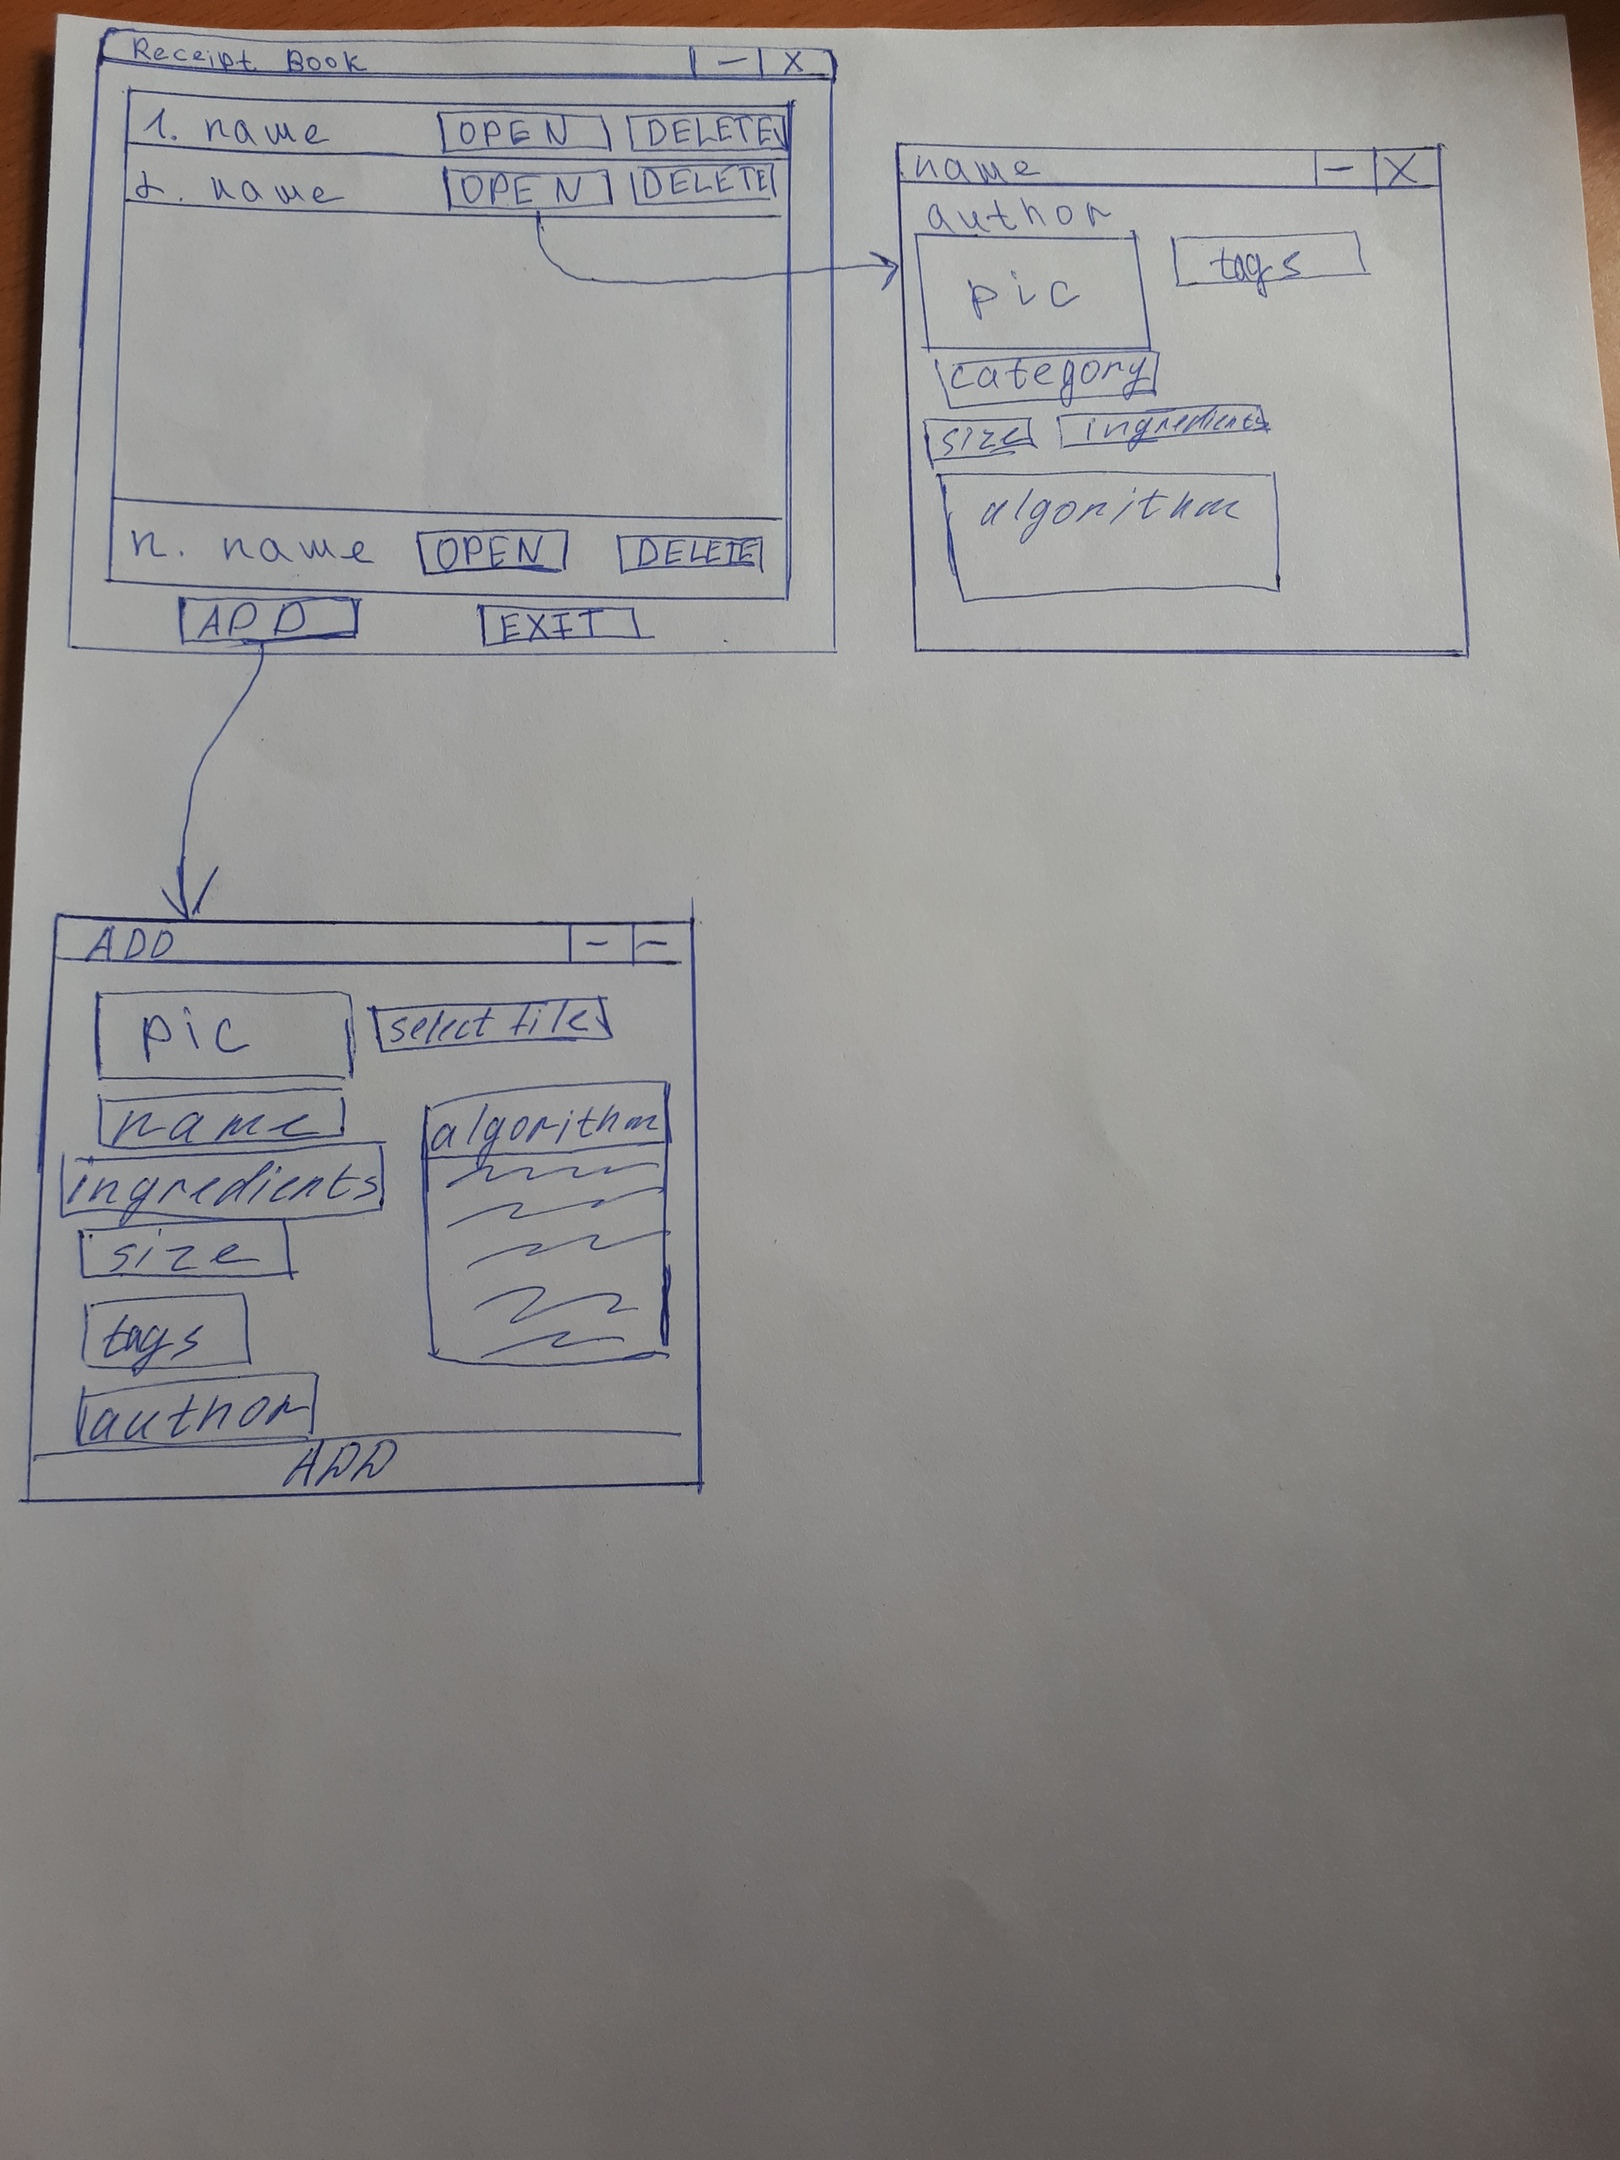 Receipt Book - X
1. name OPEN DELETE
2. name OPEN DELETE
n. name OPEN DELETE
ADD EXIT
name - X
author
pic tags
category
size ingredients
algorithm
ADD - -
pic select file
name
ingredients
size
tags
author
algorithm
ADD